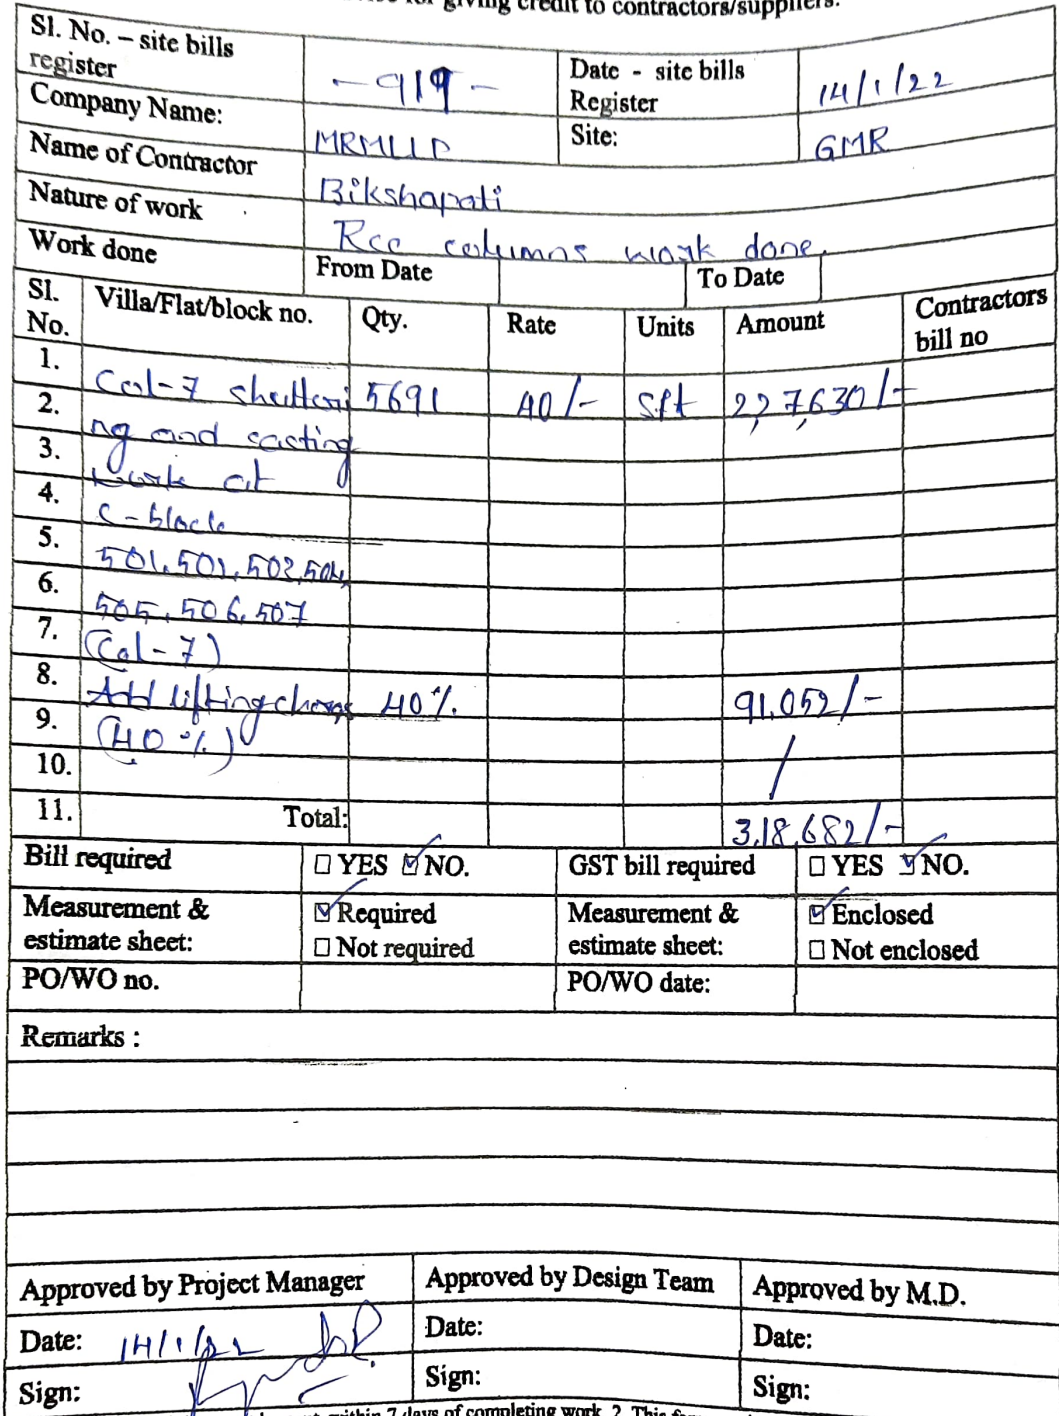 for giving credit to contractors/suppliers.
Sl. No. – site bills register -919- Date - site bills Register 14/1/22
Company Name: MRMLLP Site: GMR
Name of Contractor Bikshapati
Nature of work Rcc columns work done.
Work done From Date To Date
Sl. No. Villa/Flat/block no. Qty. Rate Units Amount Contractors bill no
1. Col-7 shutteri 5691 40/- sft 2,27,630/-
2. ng and casting
3. work at
4. C-block
5. 501,501,502,504,
6. 505,506,507
7. (Col-7)
8. Add lifting charges 40% 91,052/-
9. (40%)
10. /
11. Total: 3,18,682/-
Bill required ☐ YES ☑ NO. GST bill required ☐ YES ☑ NO.
Measurement & estimate sheet: ☑ Required Measurement & estimate sheet: ☑ Enclosed
☐ Not required ☐ Not enclosed
PO/WO no. PO/WO date:
Remarks :
Approved by Project Manager Approved by Design Team Approved by M.D.
Date: 14/1/22 Date: Date:
Sign: Sign: Sign:
within 7 days of completing work. 2. This